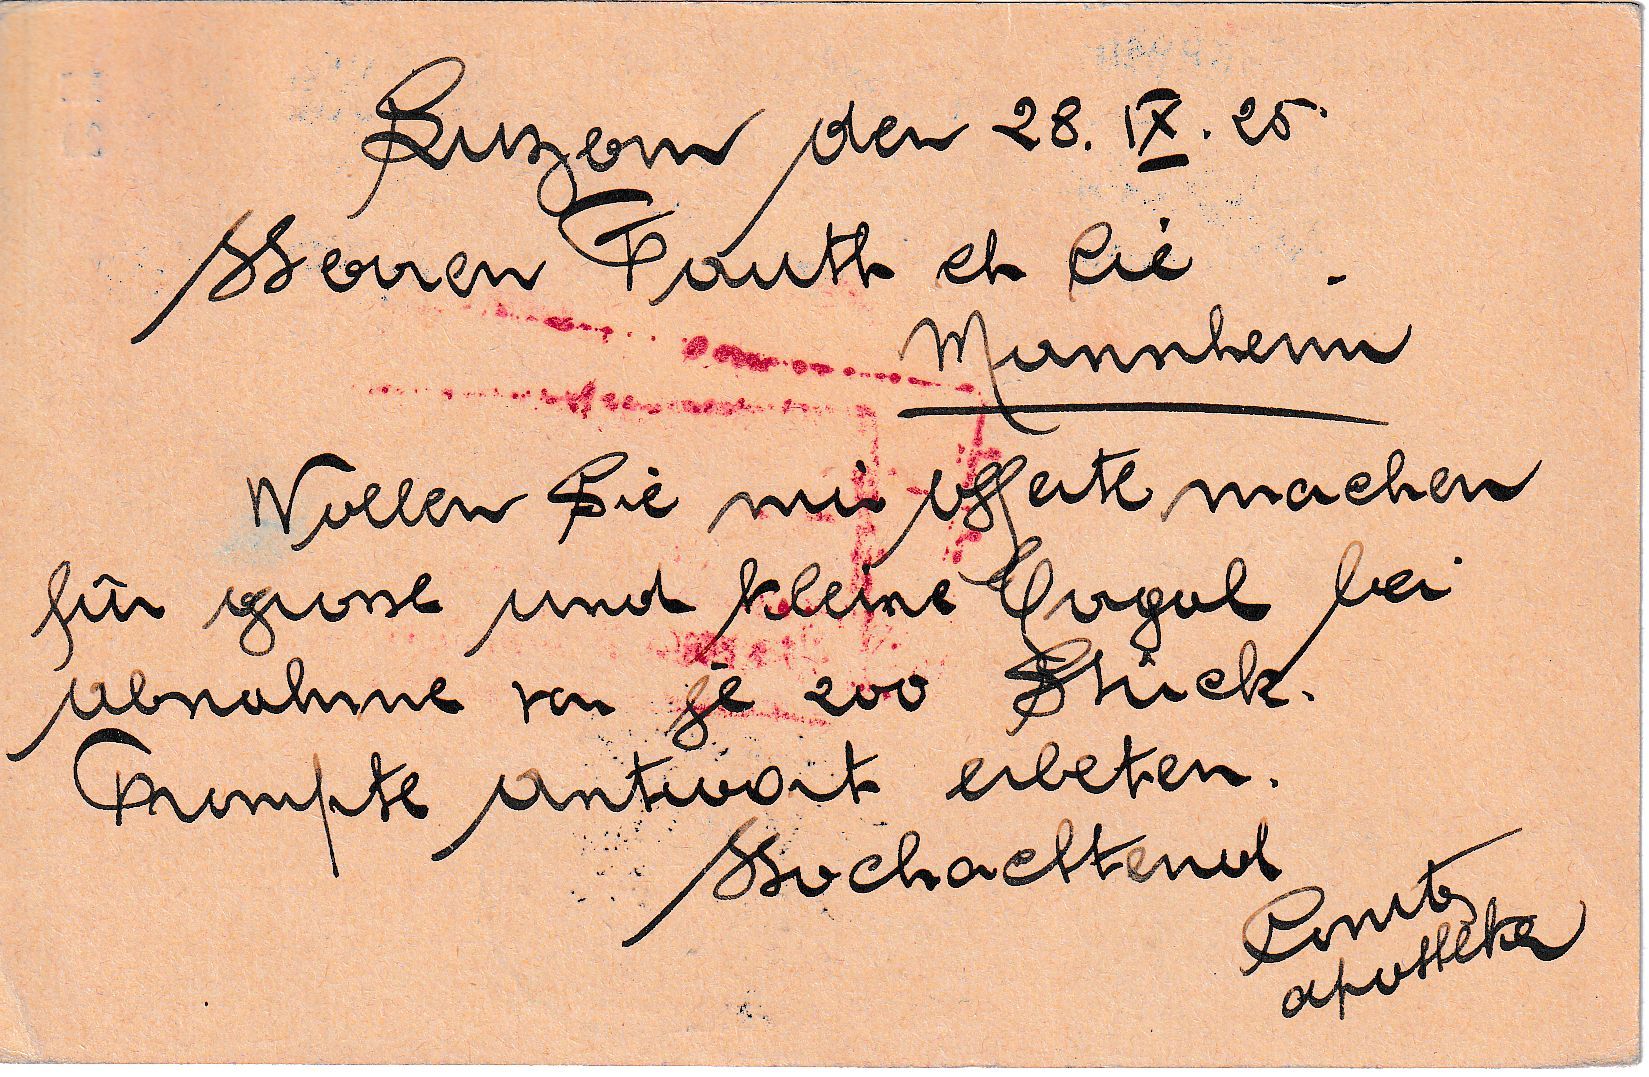 Luzern den 28. IX. 25.
Herren Fauth et Cie
Mannheim
Wollen Sie mir Offerte machen
für grosse und kleine bei
Abnahme von je 200 Stück.
Prompte Antwort erbeten.
Hochachtend
Apotheker